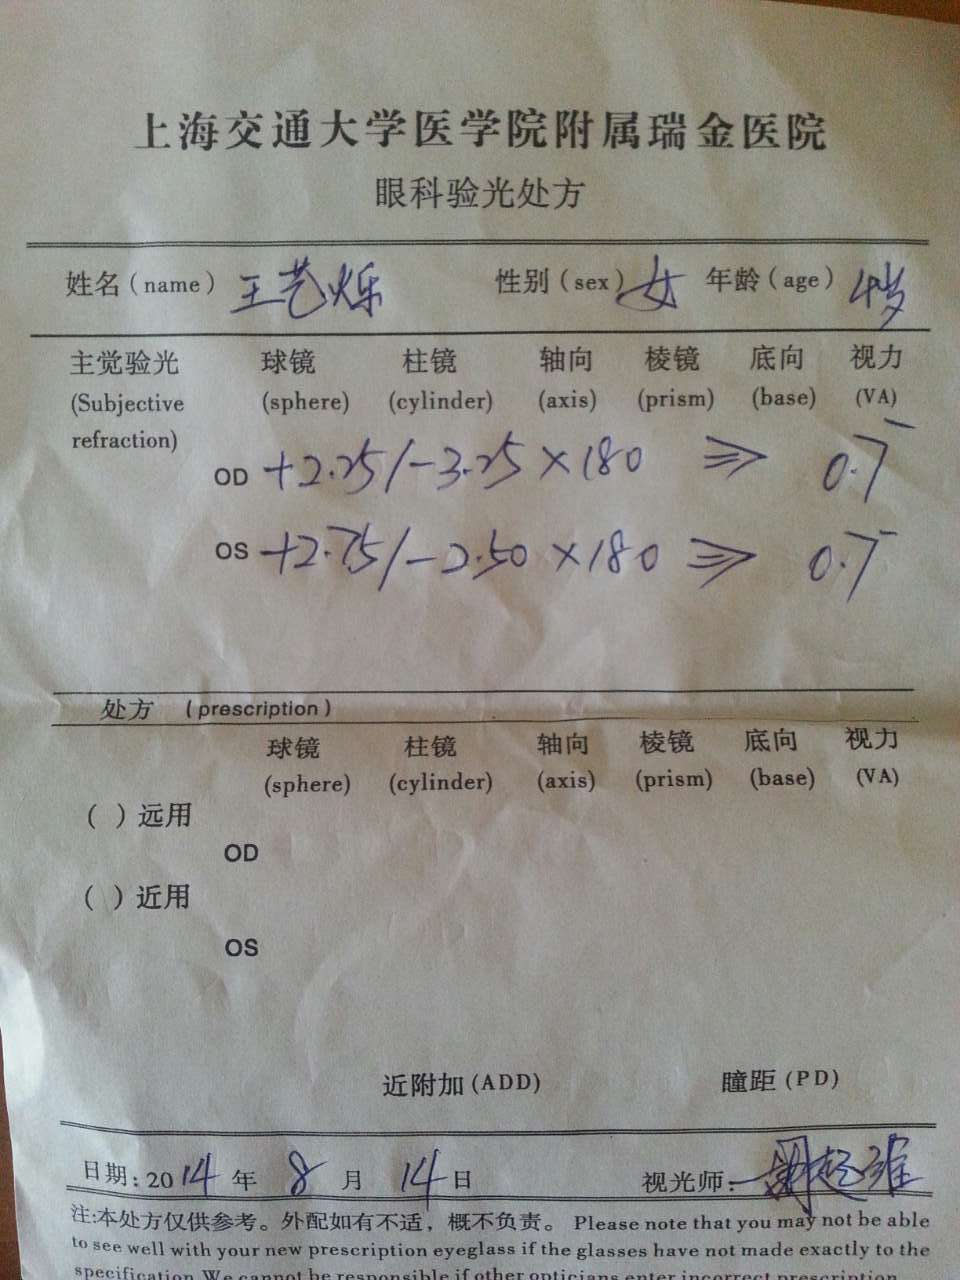 上海交通大学医学院附属瑞金医院
眼科验光处方
姓名(name) 王艺烁 性别(sex) 女 年龄(age) 4岁
主觉验光 球镜 柱镜 轴向 棱镜 底向 视力
(Subjective (sphere) (cylinder) (axis) (prism) (base) (VA)
refraction)
OD +2.25/-3.25×180 ⇒ 0.7⁻
OS +2.75/-2.50×180 ⇒ 0.7⁻
处方 (prescription)
球镜 柱镜 轴向 棱镜 底向 视力
(sphere) (cylinder) (axis) (prism) (base) (VA)
( ) 远用
OD
( ) 近用
OS
近附加(ADD) 瞳距(PD)
日期: 2014 年 8 月 14 日 视光师:
注:本处方仅供参考。外配如有不适，概不负责。 Please note that you may not be able
to see well with your new prescription eyeglass if the glasses have not made exactly to the
specification We cannot be responsible if other opticians enter incorrect prescription